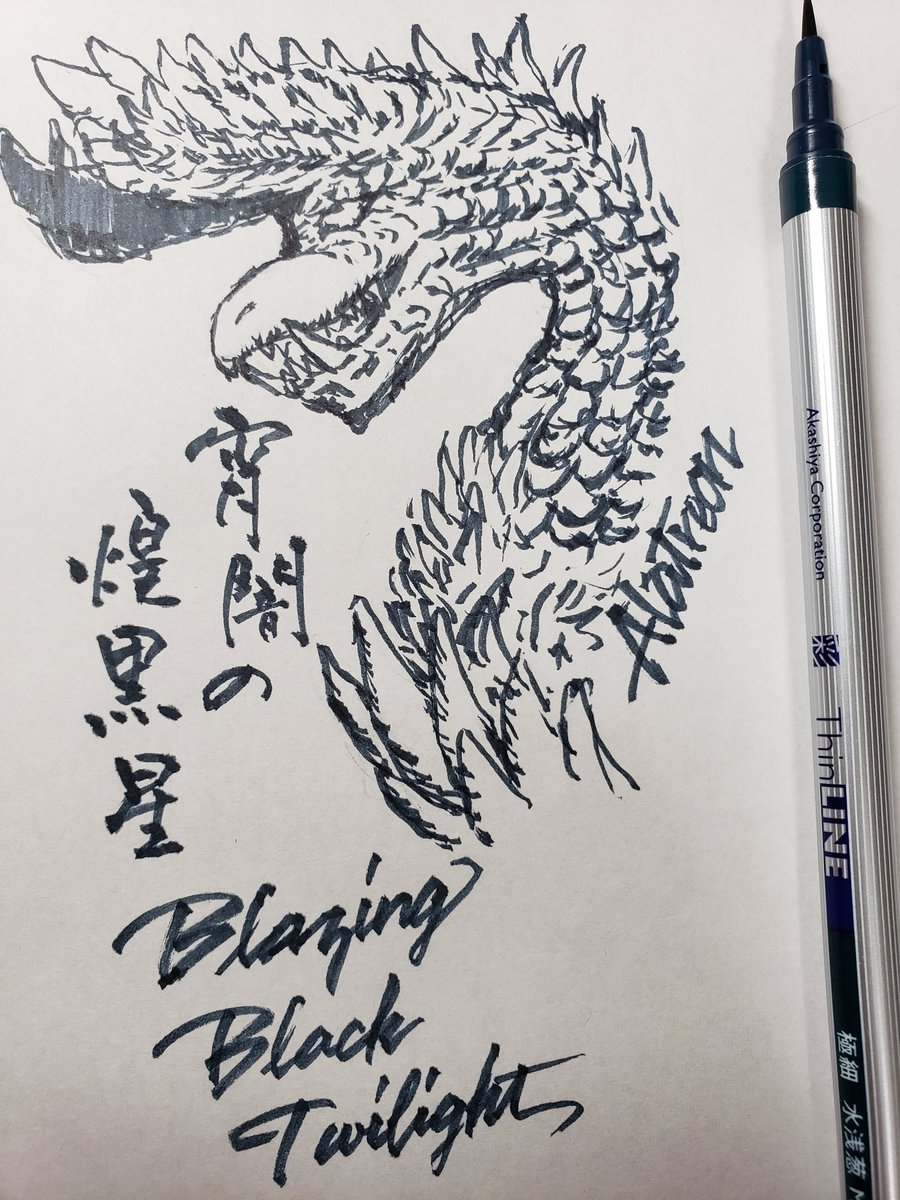 宵闇の
煌黒星
Alatreon
Blazing
Black
Twilight
Akashiya Corporation
彩 ThinLINE
極細 水浅葱